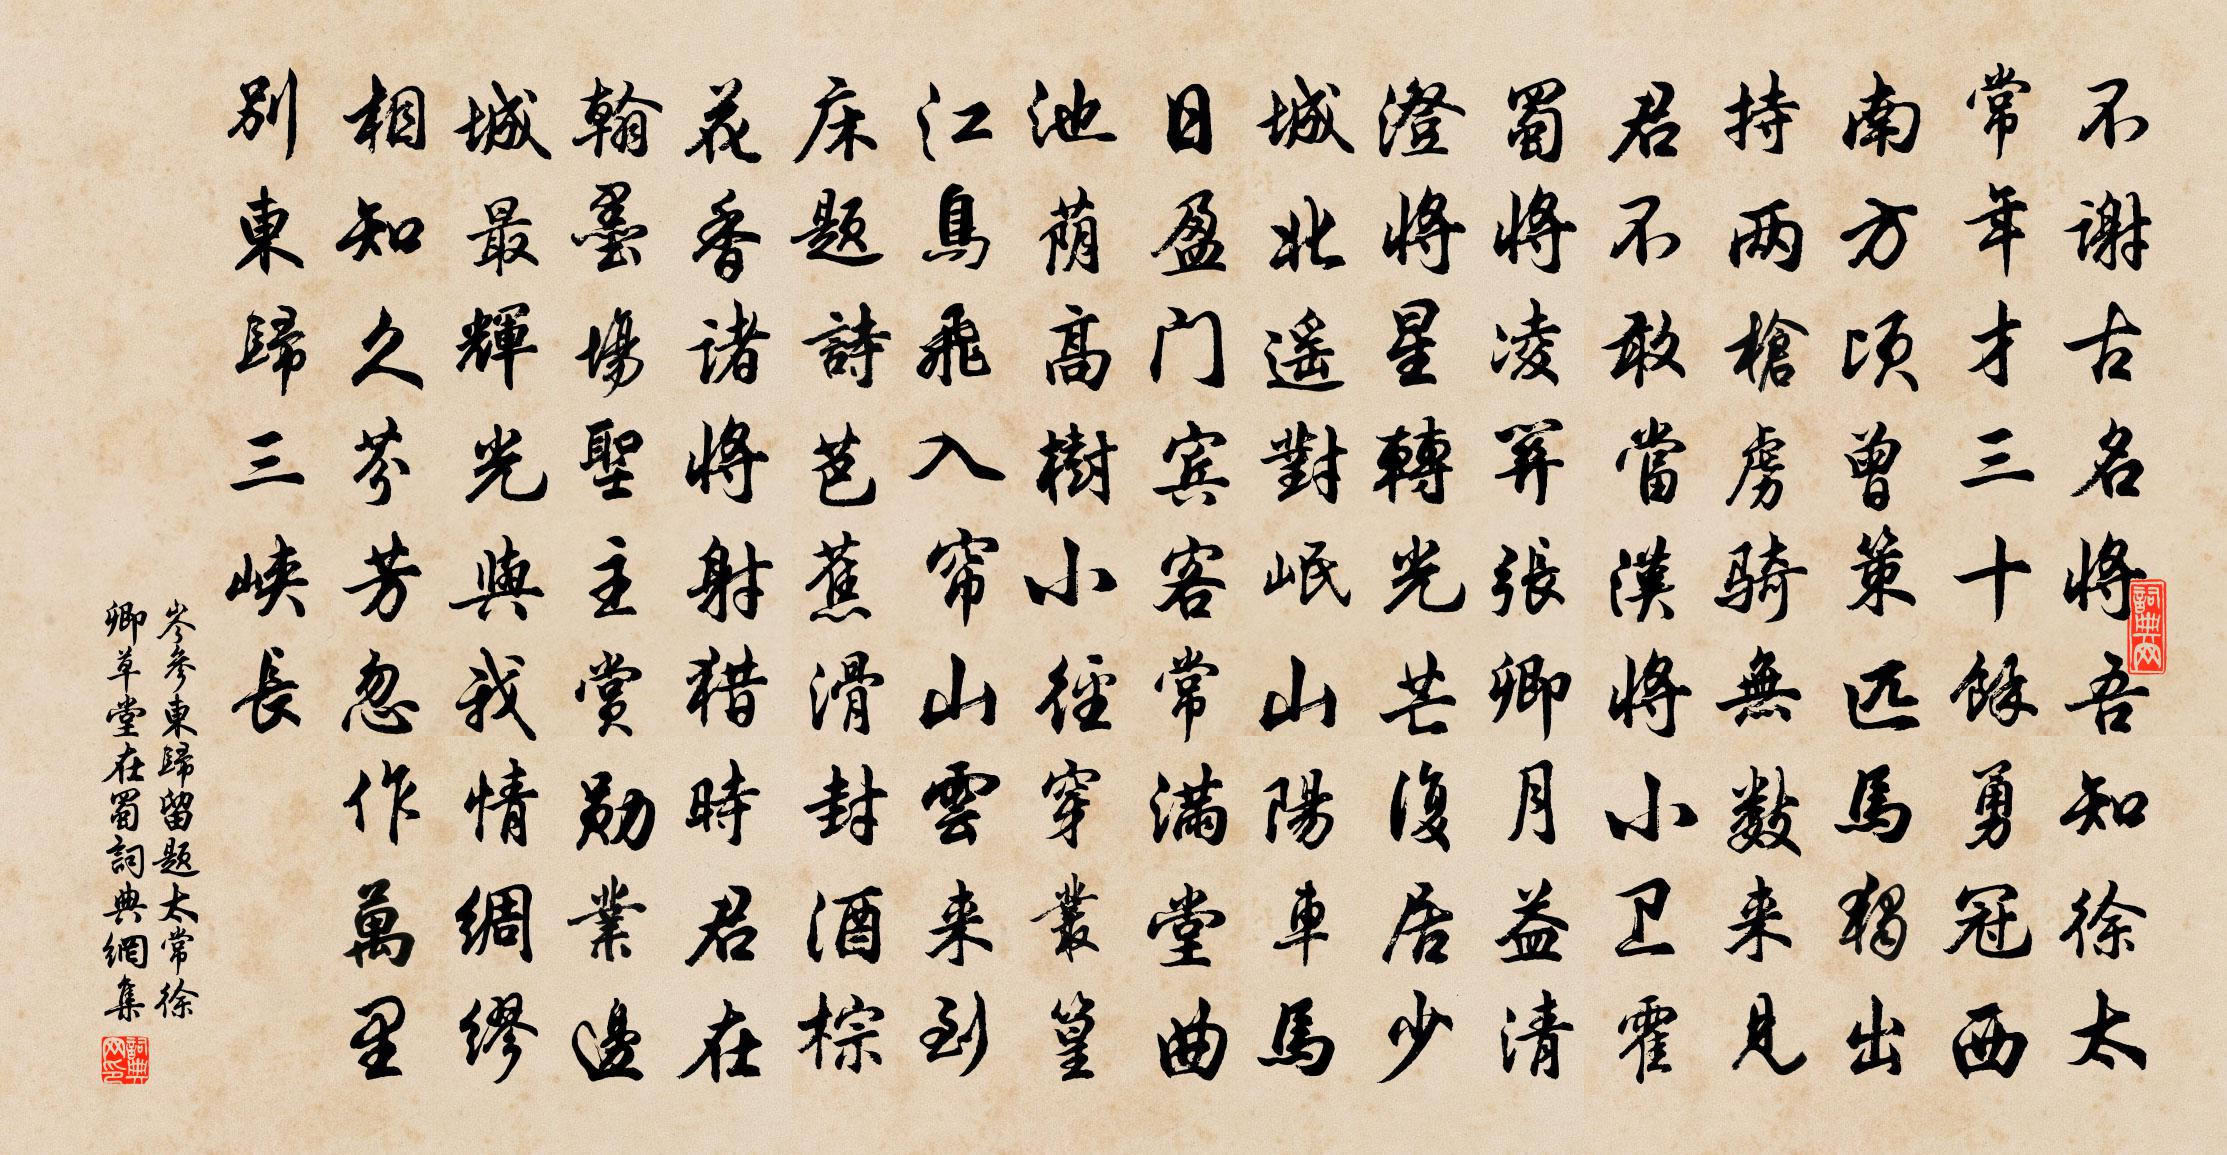 不謝古名將吾知徐太
常年才三十餘勇冠西
南方顷曾策匹馬獨出
持两槍虏骑無數来見
君不敢當漢將小卫霍
蜀將凌關張卿月益清
澄將星轉光芒復居少
城北遥對岷山陽車馬
日盈门宾客常滿堂曲
池荫高樹小徑穿叢篁
江鳥飛入帘山雲来到
床题詩芭蕉滑封酒棕
花香诸將射猎時君在
翰墨場聖主賞勋業邊
城最輝光與我情綢繆
相知久芬芳忽作萬里
别東歸三峡長
岑參東歸留题太常徐
卿草堂在蜀詞典網集
詞典网
詞典网印